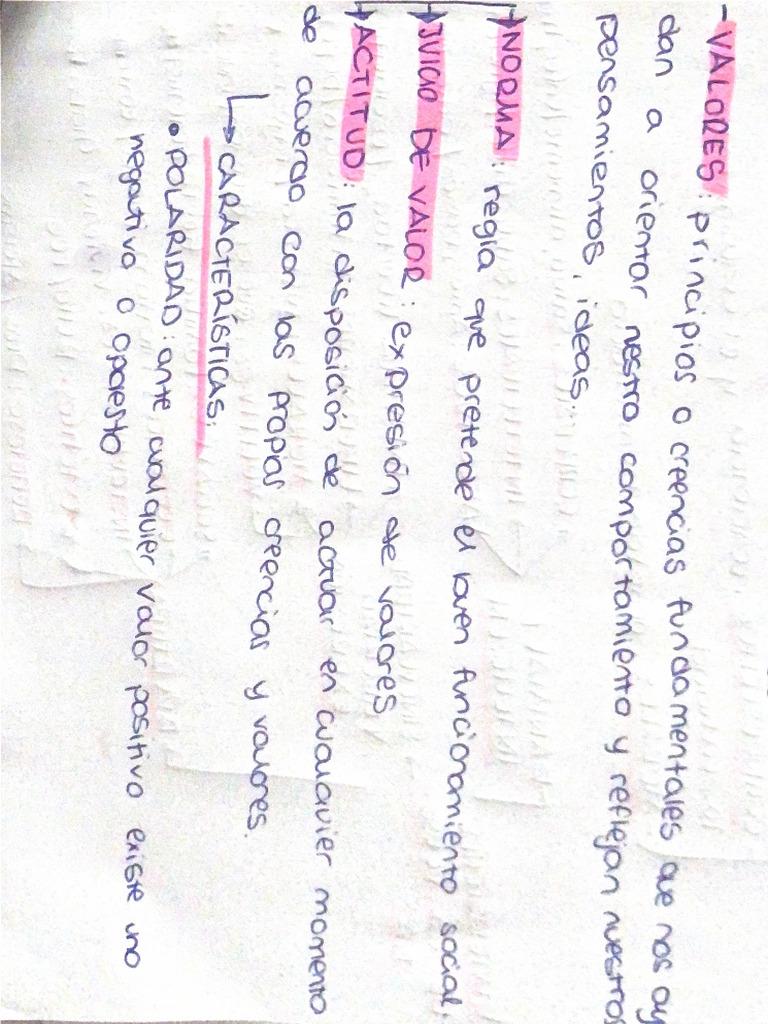 - VALORES: principios o creencias fundamentales que nos ay
dan a orientar nestro comportamiento y reflejan nuestros
pensamientos, ideas...
→ NORMA: regla que pretende el buen funcionamiento social.
→ JUICIO DE VALOR: expresión de valores
→ ACTITUD: la disposición de actuar en cualquier momento
de acuerdo con las propias creencias y valores.
→ CARACTERÍSTICAS:
• POLARIDAD: ante cualquier valor positivo existe uno
negativo o opuesto